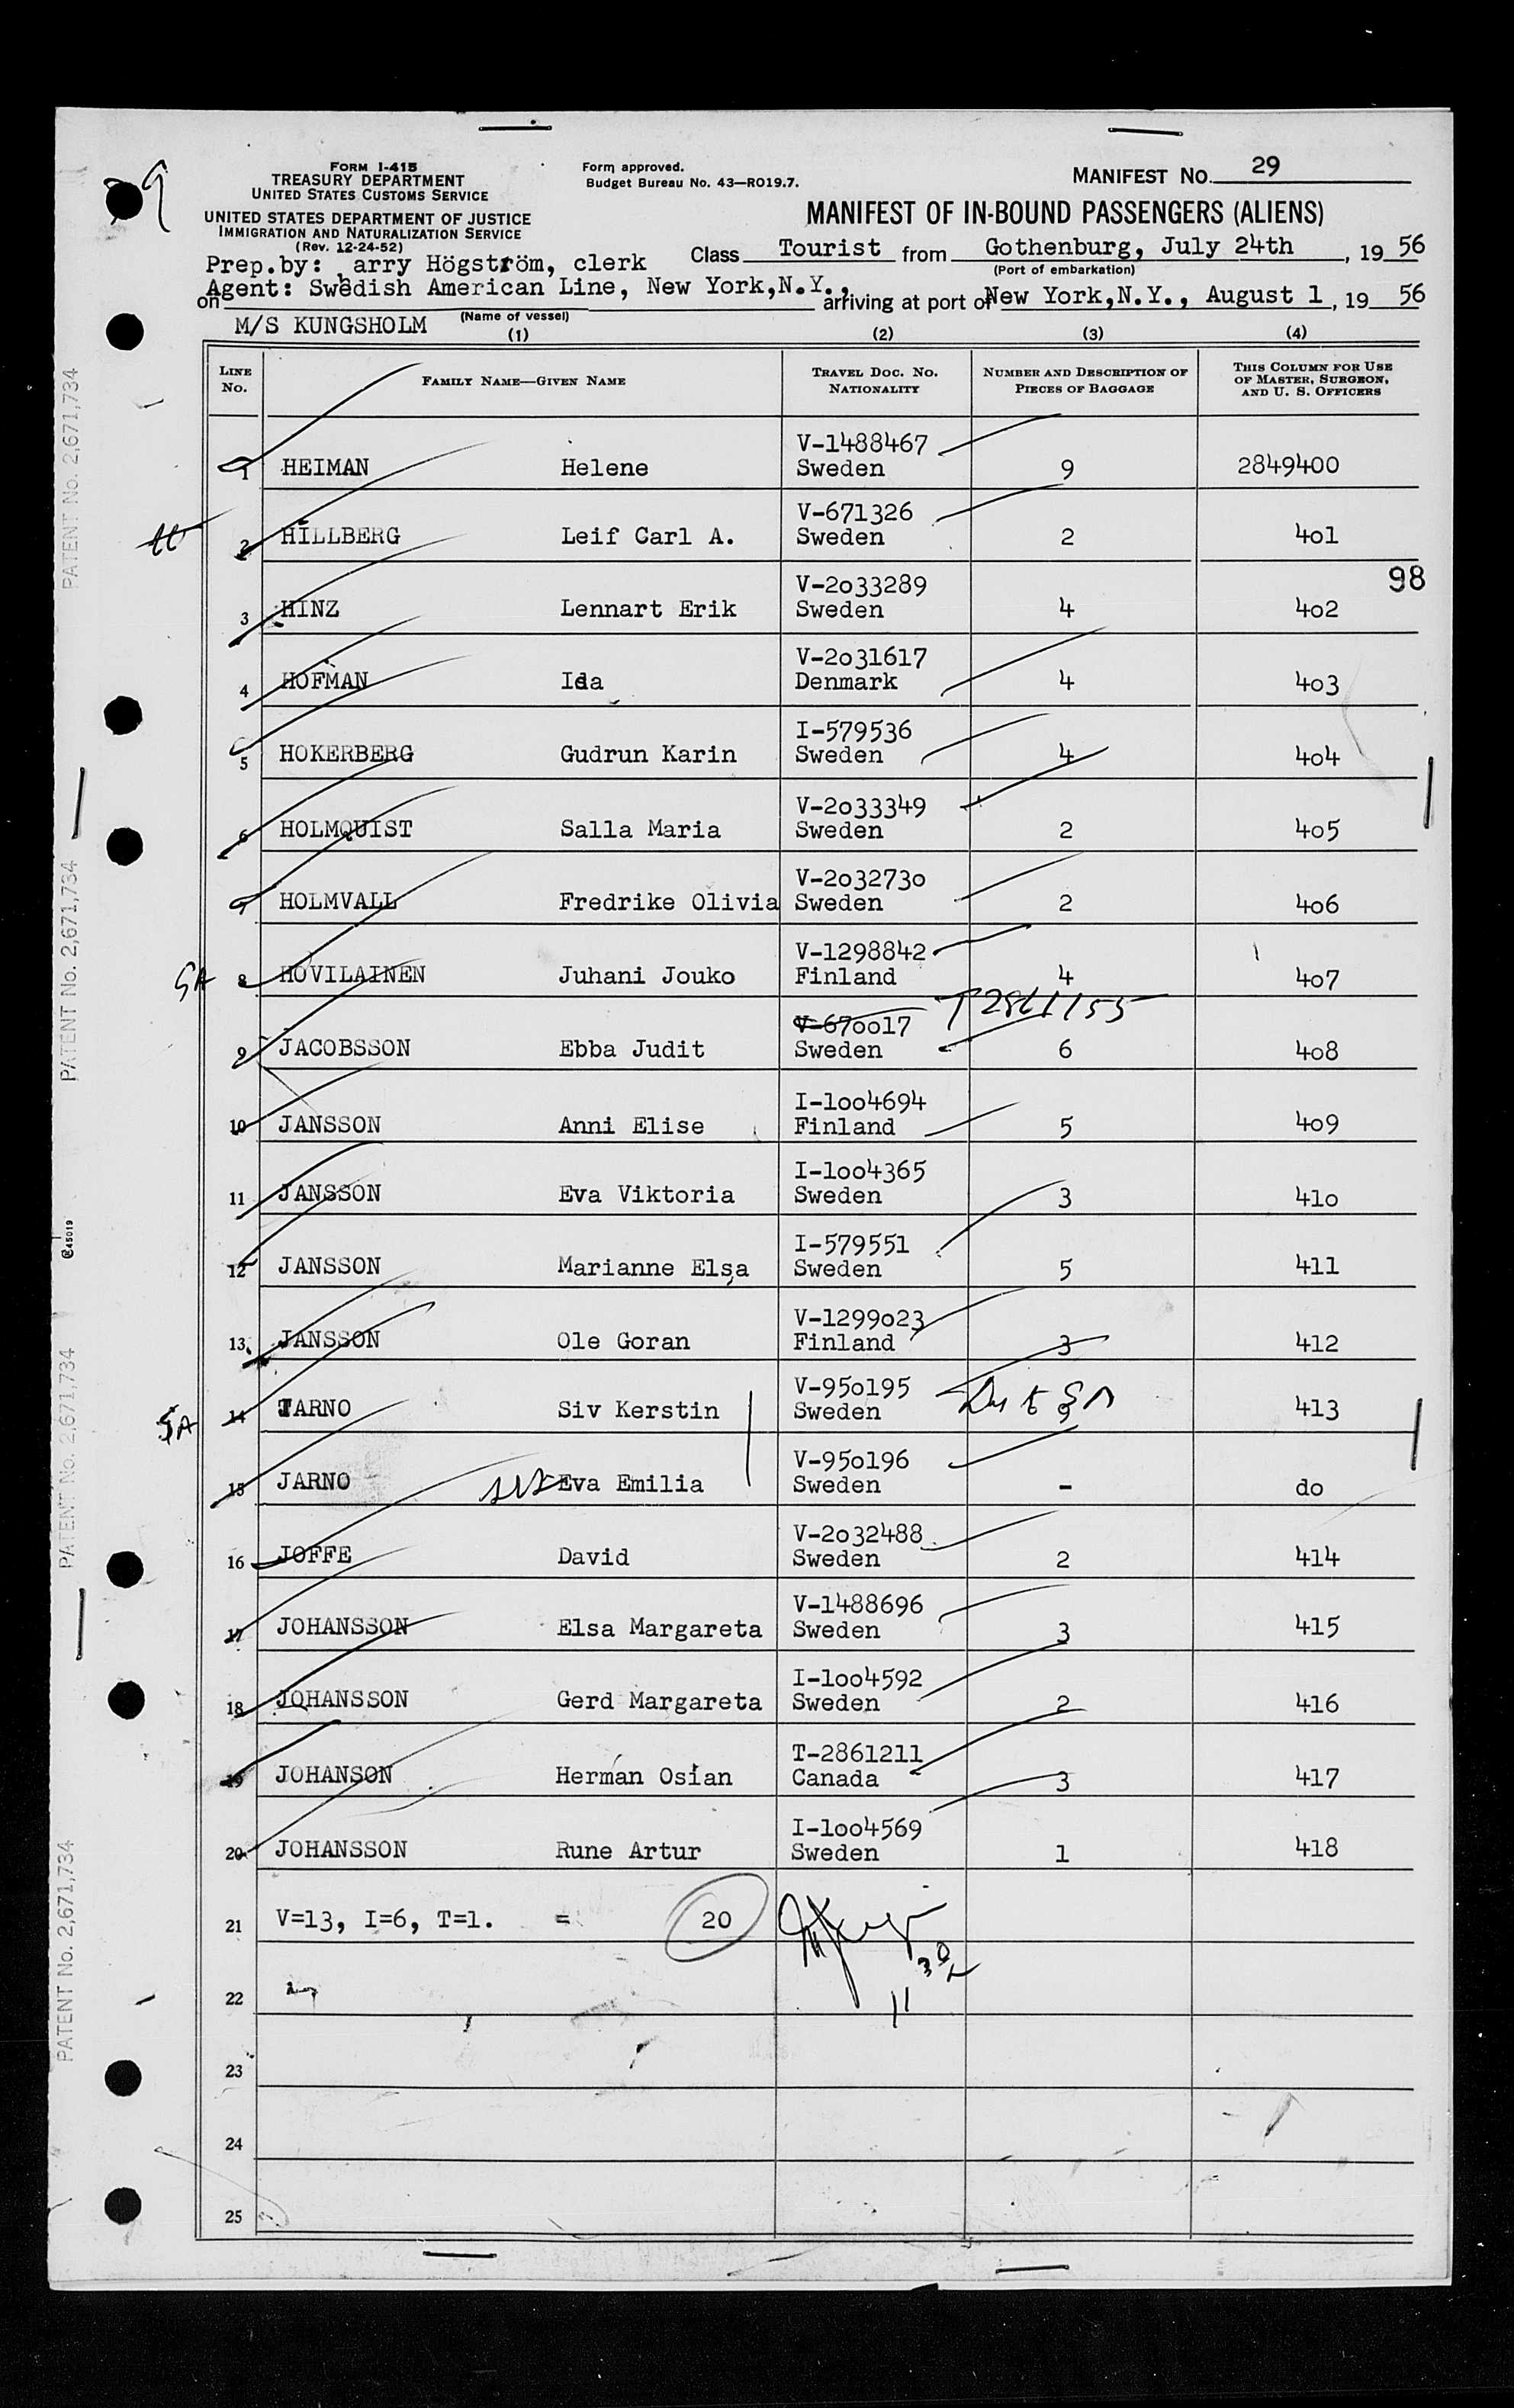 FORM I-415
TREASURY DEPARTMENT
UNITED STATES CUSTOMS SERVICE
UNITED STATES DEPARTMENT OF JUSTICE
IMMIGRATION AND NATURALIZATION SERVICE
(Rev. 12-24-52)
Form approved.
Budget Bureau No. 43—RO19.7.
MANIFEST NO. 29
MANIFEST OF IN-BOUND PASSENGERS (ALIENS)
Prep.by: arry Högström, clerk
Class Tourist from Gothenburg, July 24th, 19 56
(Port of embarkation)
Agent: Swedish American Line, New York,N.Y.,
on arriving at port of New York,N.Y., August 1, 19 56
M/S KUNGSHOLM (Name of vessel)
(1) (2) (3) (4)
LINE NO. FAMILY NAME—GIVEN NAME TRAVEL DOC. NO. NATIONALITY NUMBER AND DESCRIPTION OF PIECES OF BAGGAGE THIS COLUMN FOR USE OF MASTER, SURGEON, AND U. S. OFFICERS
V-1488467
1 HEIMAN Helene Sweden 9 2849400
V-671326
2 HILLBERG Leif Carl A. Sweden 2 4o1
98
V-2o33289
3 HINZ Lennart Erik Sweden 4 4o2
V-2o31617
4 HOFMAN Ida Denmark 4 4o3
I-579536
5 HOKERBERG Gudrun Karin Sweden 4 4o4
V-2o33349
6 HOLMQUIST Salla Maria Sweden 2 4o5
V-2o3273o
7 HOLMVALL Fredrike Olivia Sweden 2 4o6
V-1298842
SA 8 HOVILAINEN Juhani Jouko Finland 4 4o7
V-67oo17 T2861155
9 JACOBSSON Ebba Judit Sweden 6 4o8
I-1oo4694
10 JANSSON Anni Elise Finland 5 4o9
I-1oo4365
11 JANSSON Eva Viktoria Sweden 3 41o
I-579551
12 JANSSON Marianne Elsa Sweden 5 411
V-1299o23
13 JANSSON Ole Goran Finland 3 412
V-95o195
SA 14 JARNO Siv Kerstin Sweden 413
V-95o196
15 JARNO Eva Emilia Sweden - do
V-2o32488
16 JOFFE David Sweden 2 414
V-1488696
17 JOHANSSON Elsa Margareta Sweden 3 415
I-1oo4592
18 JOHANSSON Gerd Margareta Sweden 2 416
T-2861211
19 JOHANSON Herman Osian Canada 3 417
I-1oo4569
20 JOHANSSON Rune Artur Sweden 1 418
21 V=13, I=6, T=1. = 20
22
23
24
25
PATENT No. 2,671,734
PATENT No. 2,671,734
PATENT No. 2,671,734
PATENT No. 2,671,734
C45019